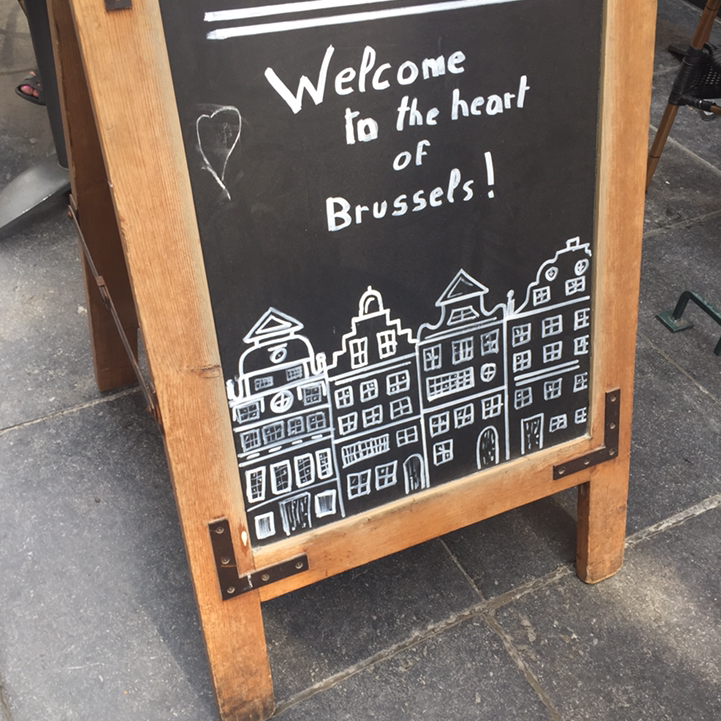 Welcome
to the heart
of
Brussels!